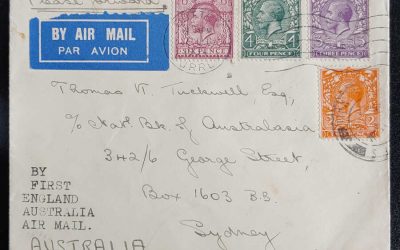 Please forward
BY AIR MAIL
PAR AVION
SIX PENCE
FOUR PENCE
THREE PENCE
Thomas W. Tuckwell, Esq,
c/o Nat. Bk. of Australasia
342/6
George Street,
Box 1603 B.B.
Sydney
AUSTRALIA
BY
FIRST
ENGLAND
AUSTRALIA
AIR MAIL.